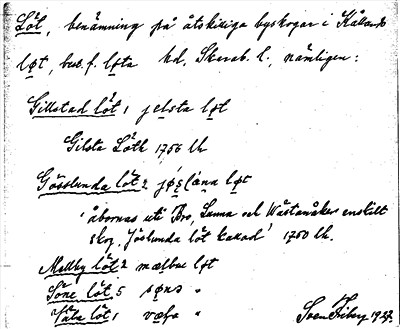 Löt, benämning på åtskilliga byskogar i Kållands
løt, best. f. løta hd, Skarab. l., nämligen:
Gillstad löt 1 jelsta løt
Gilsta Löth 1756 lh
Gösslunda löt 2 løt
'åbornas uti Bro, Sunna och Wästanåkers enskilt
skog, Jöslunda löt kallad' 1750 lh.
Mellby löt 2 mælbo løt
Söne löt 5 sønə "
Väla löt 1 "
Sven Friberg 1927.